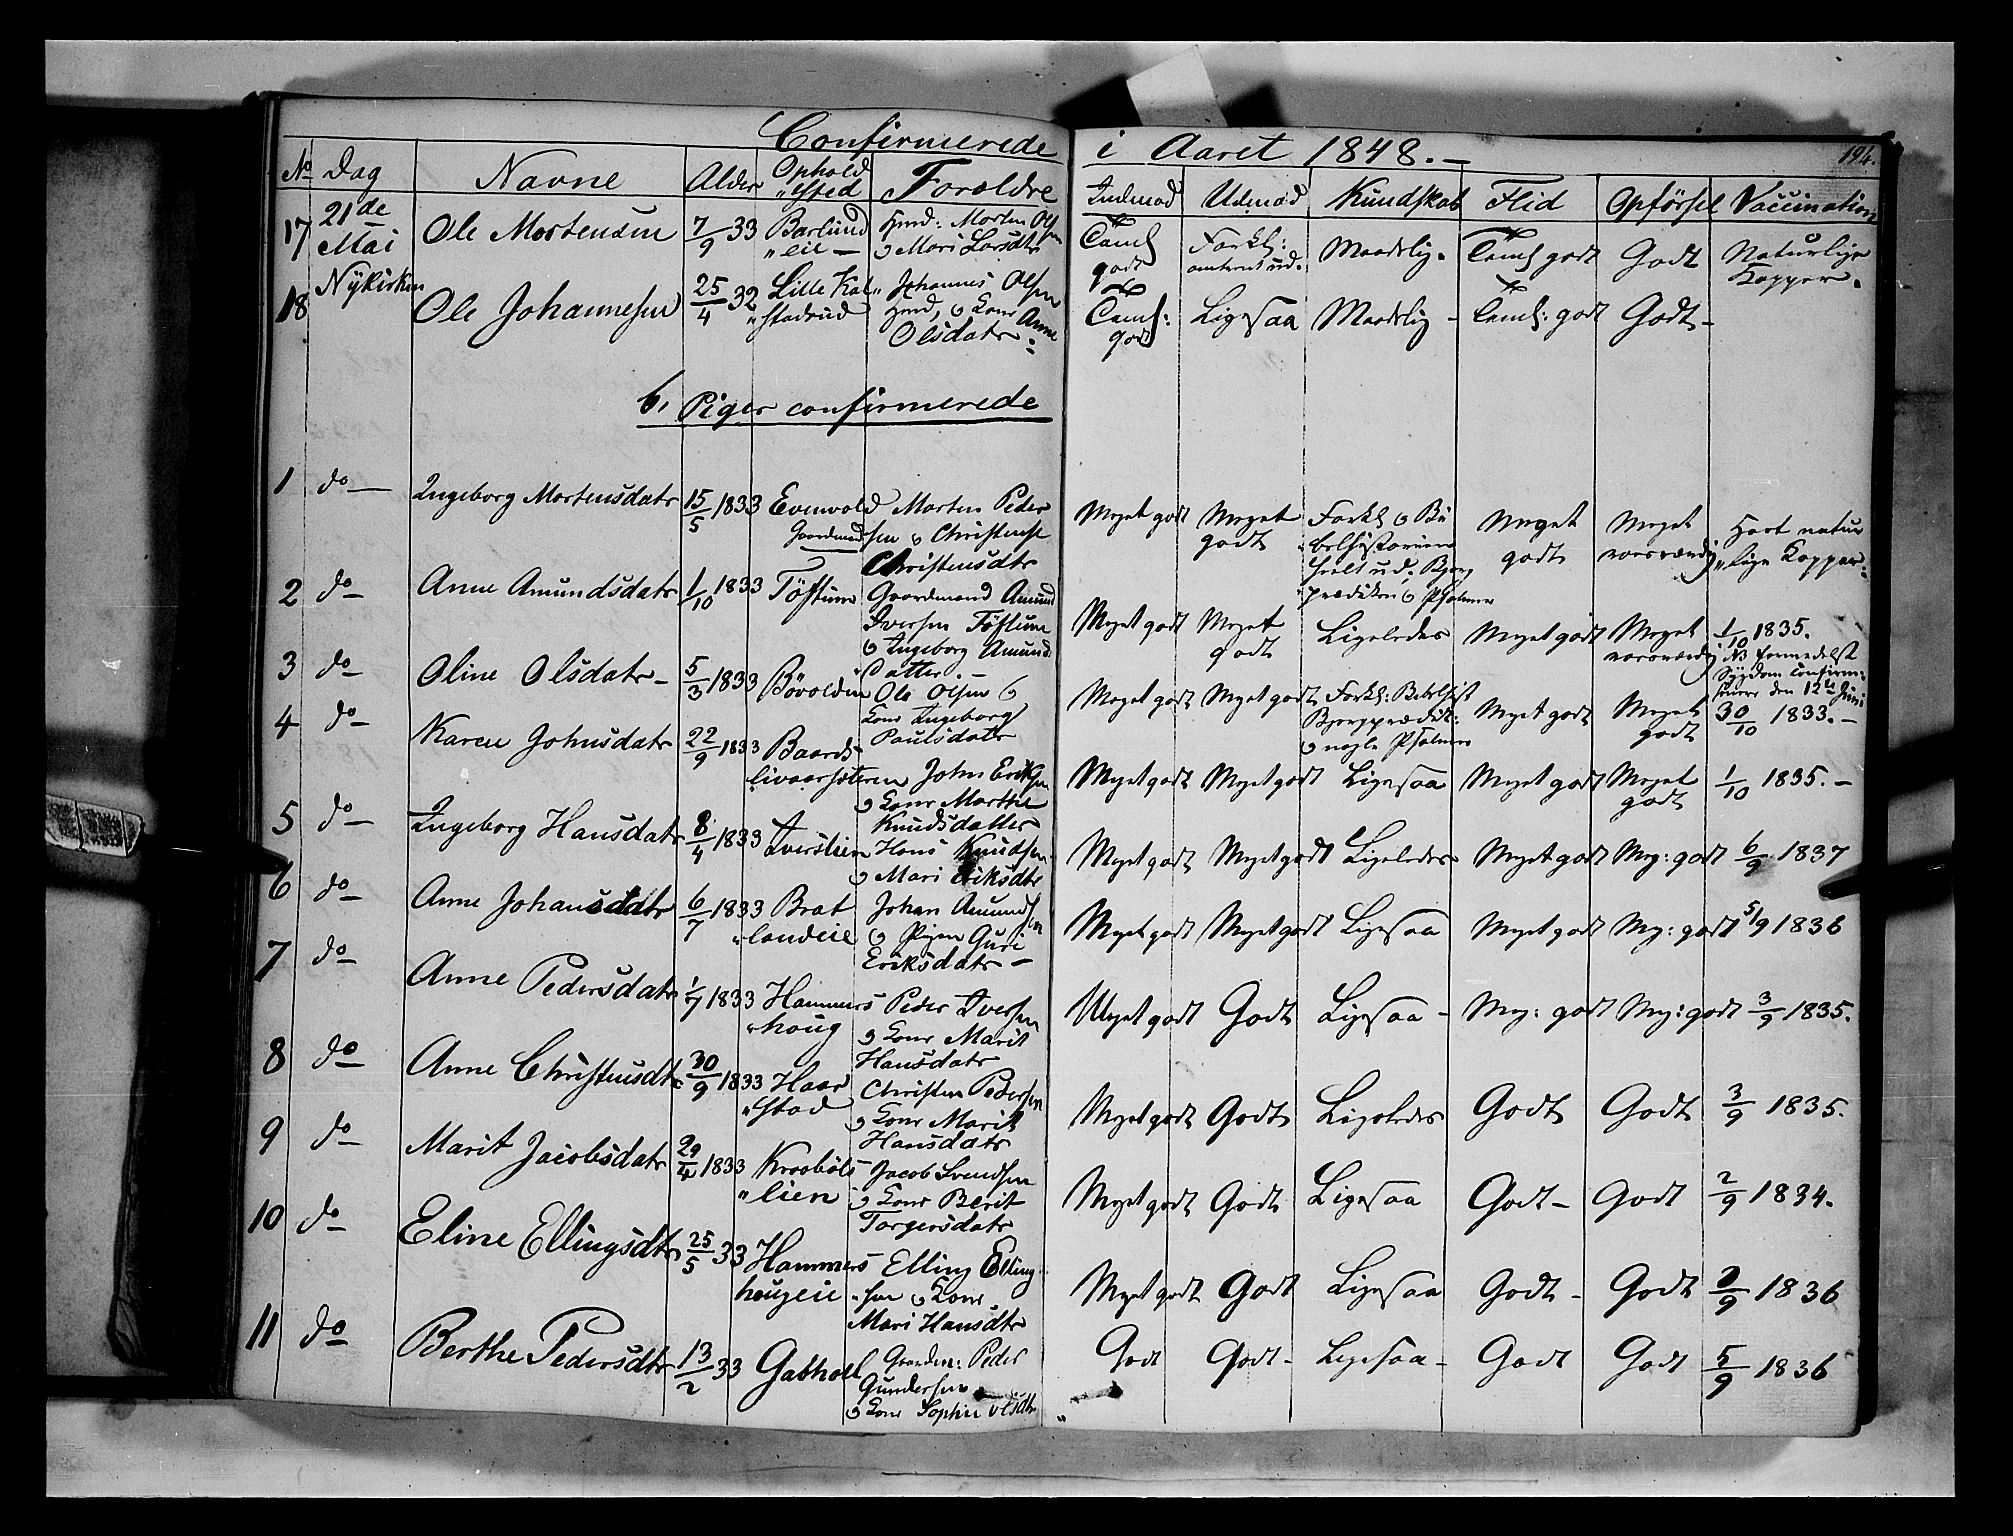 Confirmerede i Aaret 1848.-
194.
No Dag Navne Alder Ophold "sted Forældre Indmod Udmod Kundskab Flid Opførsel Vaccination
17 21de Mai Ole Mortensen 7/9 33 Barlund "eie - Hmd: Morten Olsen
o Mari Larsdtr Taml godt Forkl: omtrent ud. Maadelig. Taml godt Godt Naturlige Kopper.
Nykirken
18 Ole Johannesen 25/4 32 Lille Kal "stadrud Johannes Olsen
Hmd, o Kone Anne
Olsdatr. Taml: godt Ligesaa Maadelig - Taml: godt Godt-
b, Piger confirmerede
1 do- Ingeborg Mortensdatr 15/5 1833 Evenvold Morten Peder
Gaardmand sen o Christense
Christensdtr Meget godt Meget godt Forkl o Bi
belhistorien
heelt ud. Bjerg
prædiken o Psalmer Meget godt Meget roesværdig Havt natur
"lige Kopper.
2 do- Anne Amundsdatr 1/10 1833 Töftum Gaardmand Amund
Iversen Töftum
o Ingeborg Amunds
datter.- Meget godt Meget godt Ligeledes Meget godt Meget roesværdig 1/10 1835.
NB formedelst
Sygdom confirm:
senere den 12te Juni
3 do- Oline Olsdatr- 5/3 1833 Bövolden Ole Olsen o
Kone Ingeborg
Paulsdatr Meget godt Meget godt Forkl: Bibelhist
Bjergprædik:
o nogle Psalmer Meget godt Meget godt 30/10 1833.-
4 do- Karen Johnsdatr 22/9 1833 Baards-
John Eriksen
o Kone Marthe
Knudsdatter Meget godt Meget godt Ligesaa Meget godt Meget godt 1/10 1835.-
5 do- Ingeborg Hansdatr 8/4 1833 Iverslien Hans Knudsen
o Mari Eriksdtr Meget godt Meget godt Ligeledes Meget godt Meg: godt 6/9 1837
6 do- Anne Johansdatr 6/7 1833 Brat "landeie Johan Amundsen
o Pigen Guri
Eriksdatr- Meget godt Meget godt Ligesaa Meget godt Meg: godt 5/9 1836
7 do- Anne Pedersdatr 1/7 1833 Hammers "houg Peder Iversen
o Kone Marit
Hansdatr Meget godt Godt Ligesaa - Meg: godt Meg: godt 3/9 1835.
8 do- Anne Christensdtr 30/9 1833 Haar "stad Christen Pedersen
o Kone Marit
Hansdatr Meget godt Godt Ligeledes Godt Godt 3/9 1835.
9 do- Marit Jacobsdatr 29/4 1833 Kraaböls "lien Jacob Svendsen
o Kone Berit
Torgersdatr Meget godt Godt Ligesaa Godt- Godt 2/9 1834.
10 do- Eline Ellingsdtr 25/5 33 Hammers hougeie Elling Elling
"sen o Kone
Mari Hansdtr Meget godt Godt Ligesaa Godt- Godt 2/9 1836
11 do- Berthe Pedersdtr 13/2 33 Gabhoel Gaardm: Peder
Gundersen
o Kone Sophie Olsdtr Godt Godt- Ligesaa- Godt Godt 5/9 1836